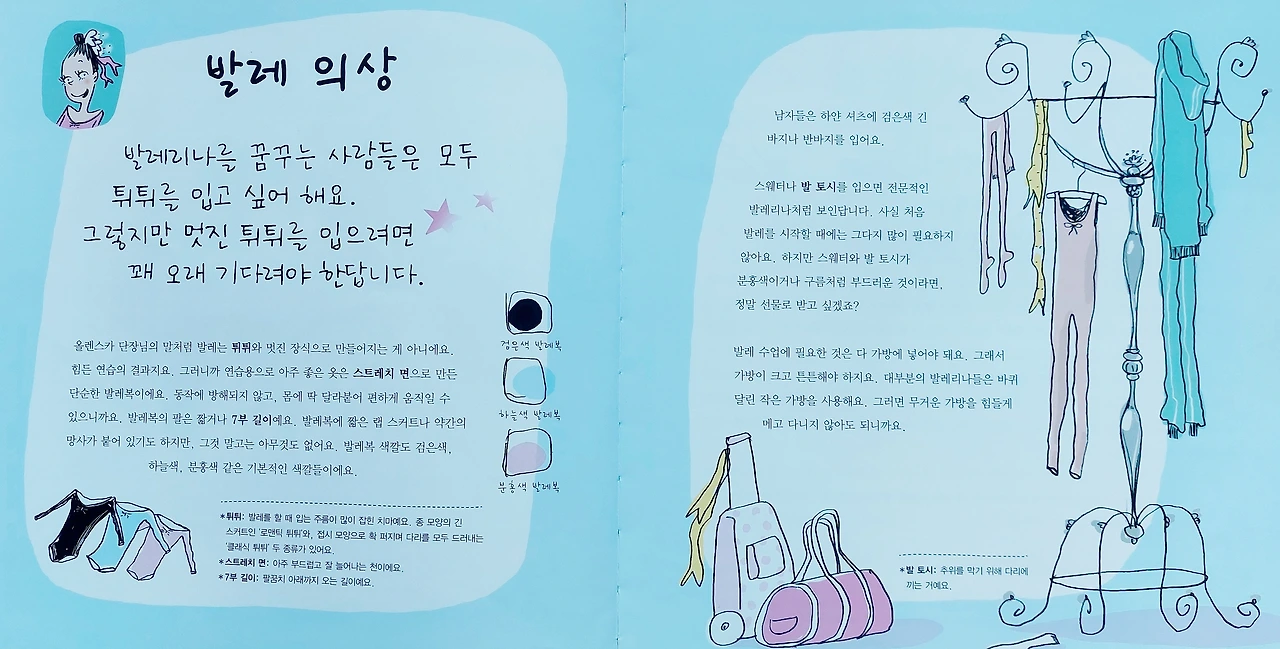 발레 의상
발레리나를 꿈꾸는 사람들은 모두
튀튀를 입고 싶어 해요.
그렇지만 멋진 튀튀를 입으려면
꽤 오래 기다려야 한답니다.
올렌스카 단장님의 말처럼 발레는 튀튀와 멋진 장식으로 만들어지는 게 아니에요.
힘든 연습의 결과지요. 그러니까 연습용으로 아주 좋은 옷은 스트레치 면으로 만든
단순한 발레복이에요. 동작에 방해되지 않고, 몸에 딱 달라붙어 편하게 움직일 수
있으니까요. 발레복의 팔은 짧거나 7부 길이예요. 발레복에 짧은 랩 스커트나 약간의
망사가 붙어 있기도 하지만, 그것 말고는 아무것도 없어요. 발레복 색깔도 검은색,
하늘색, 분홍색 같은 기본적인 색깔들이에요.
검은색 발레복
하늘색 발레복
분홍색 발레복
*튀튀: 발레를 할 때 입는 주름이 많이 잡힌 치마예요. 종 모양의 긴
스커트인 '로맨틱 튀튀'와, 접시 모양으로 확 퍼지며 다리를 모두 드러내는
'클래식 튀튀' 두 종류가 있어요.
*스트레치 면: 아주 부드럽고 잘 늘어나는 천이에요.
*7부 길이: 팔꿈치 아래까지 오는 길이예요.
남자들은 하얀 셔츠에 검은색 긴
바지나 반바지를 입어요.
스웨터나 발 토시를 입으면 전문적인
발레리나처럼 보인답니다. 사실 처음
발레를 시작할 때에는 그다지 많이 필요하지
않아요. 하지만 스웨터와 발 토시가
분홍색이거나 구름처럼 부드러운 것이라면,
정말 선물로 받고 싶겠죠?
발레 수업에 필요한 것은 다 가방에 넣어야 돼요. 그래서
가방이 크고 튼튼해야 하지요. 대부분의 발레리나들은 바퀴
달린 작은 가방을 사용해요. 그러면 무거운 가방을 힘들게
메고 다니지 않아도 되니까요.
*발 토시: 추위를 막기 위해 다리에
끼는 거예요.